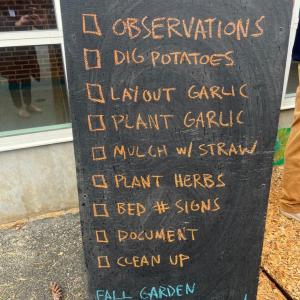 OBSERVATIONS
DIG POTATOES
LAYOUT GARLIC
PLANT GARLIC
MULCH W/ STRAW
PLANT HERBS
BED # SIGNS
DOCUMENT
CLEAN UP
FALL GARDEN